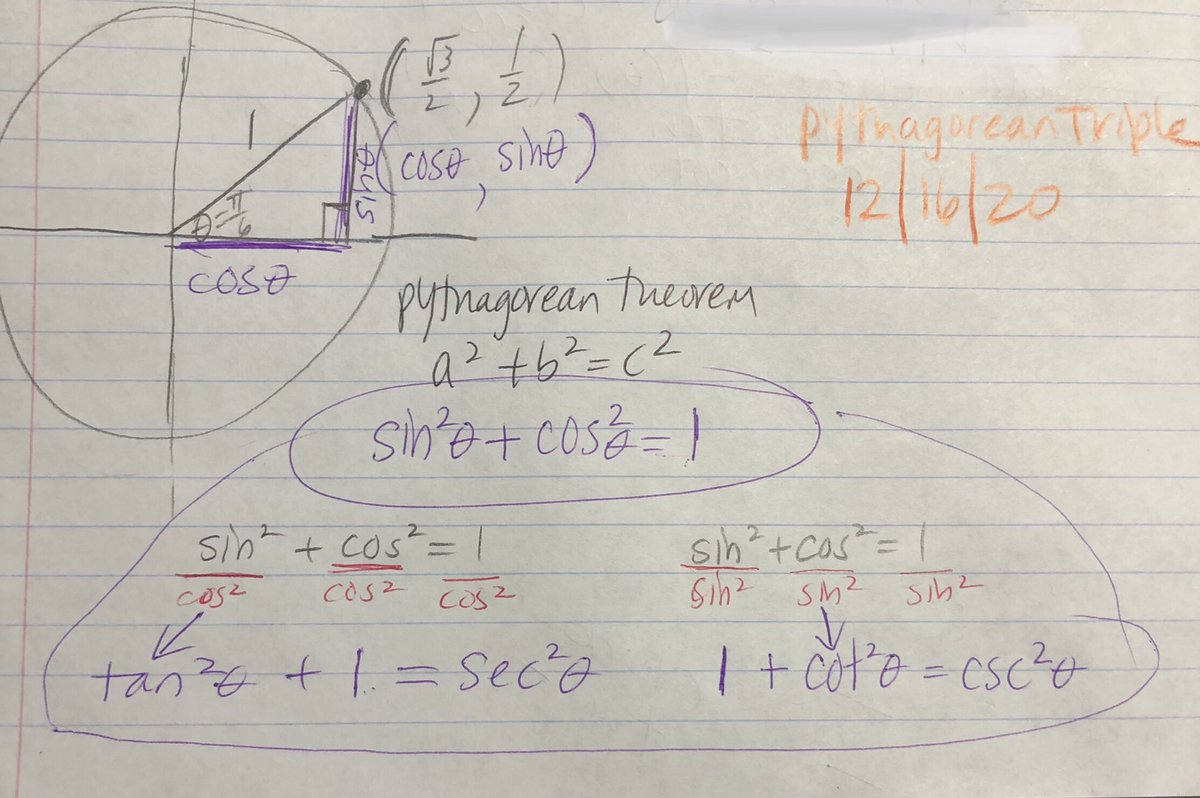 (√3/2, 1/2)
1
(cosθ, sinθ)
sinθ
θ=π/6
cosθ
pythagorean Triple
12|16|20
pythagorean theorem
a² + b² = c²
sin²θ + cos²θ = 1
sin² + cos² = 1
cos² cos² cos²
tan²θ + 1 = sec²θ
sin² + cos² = 1
sin² sin² sin²
1 + cot²θ = csc²θ